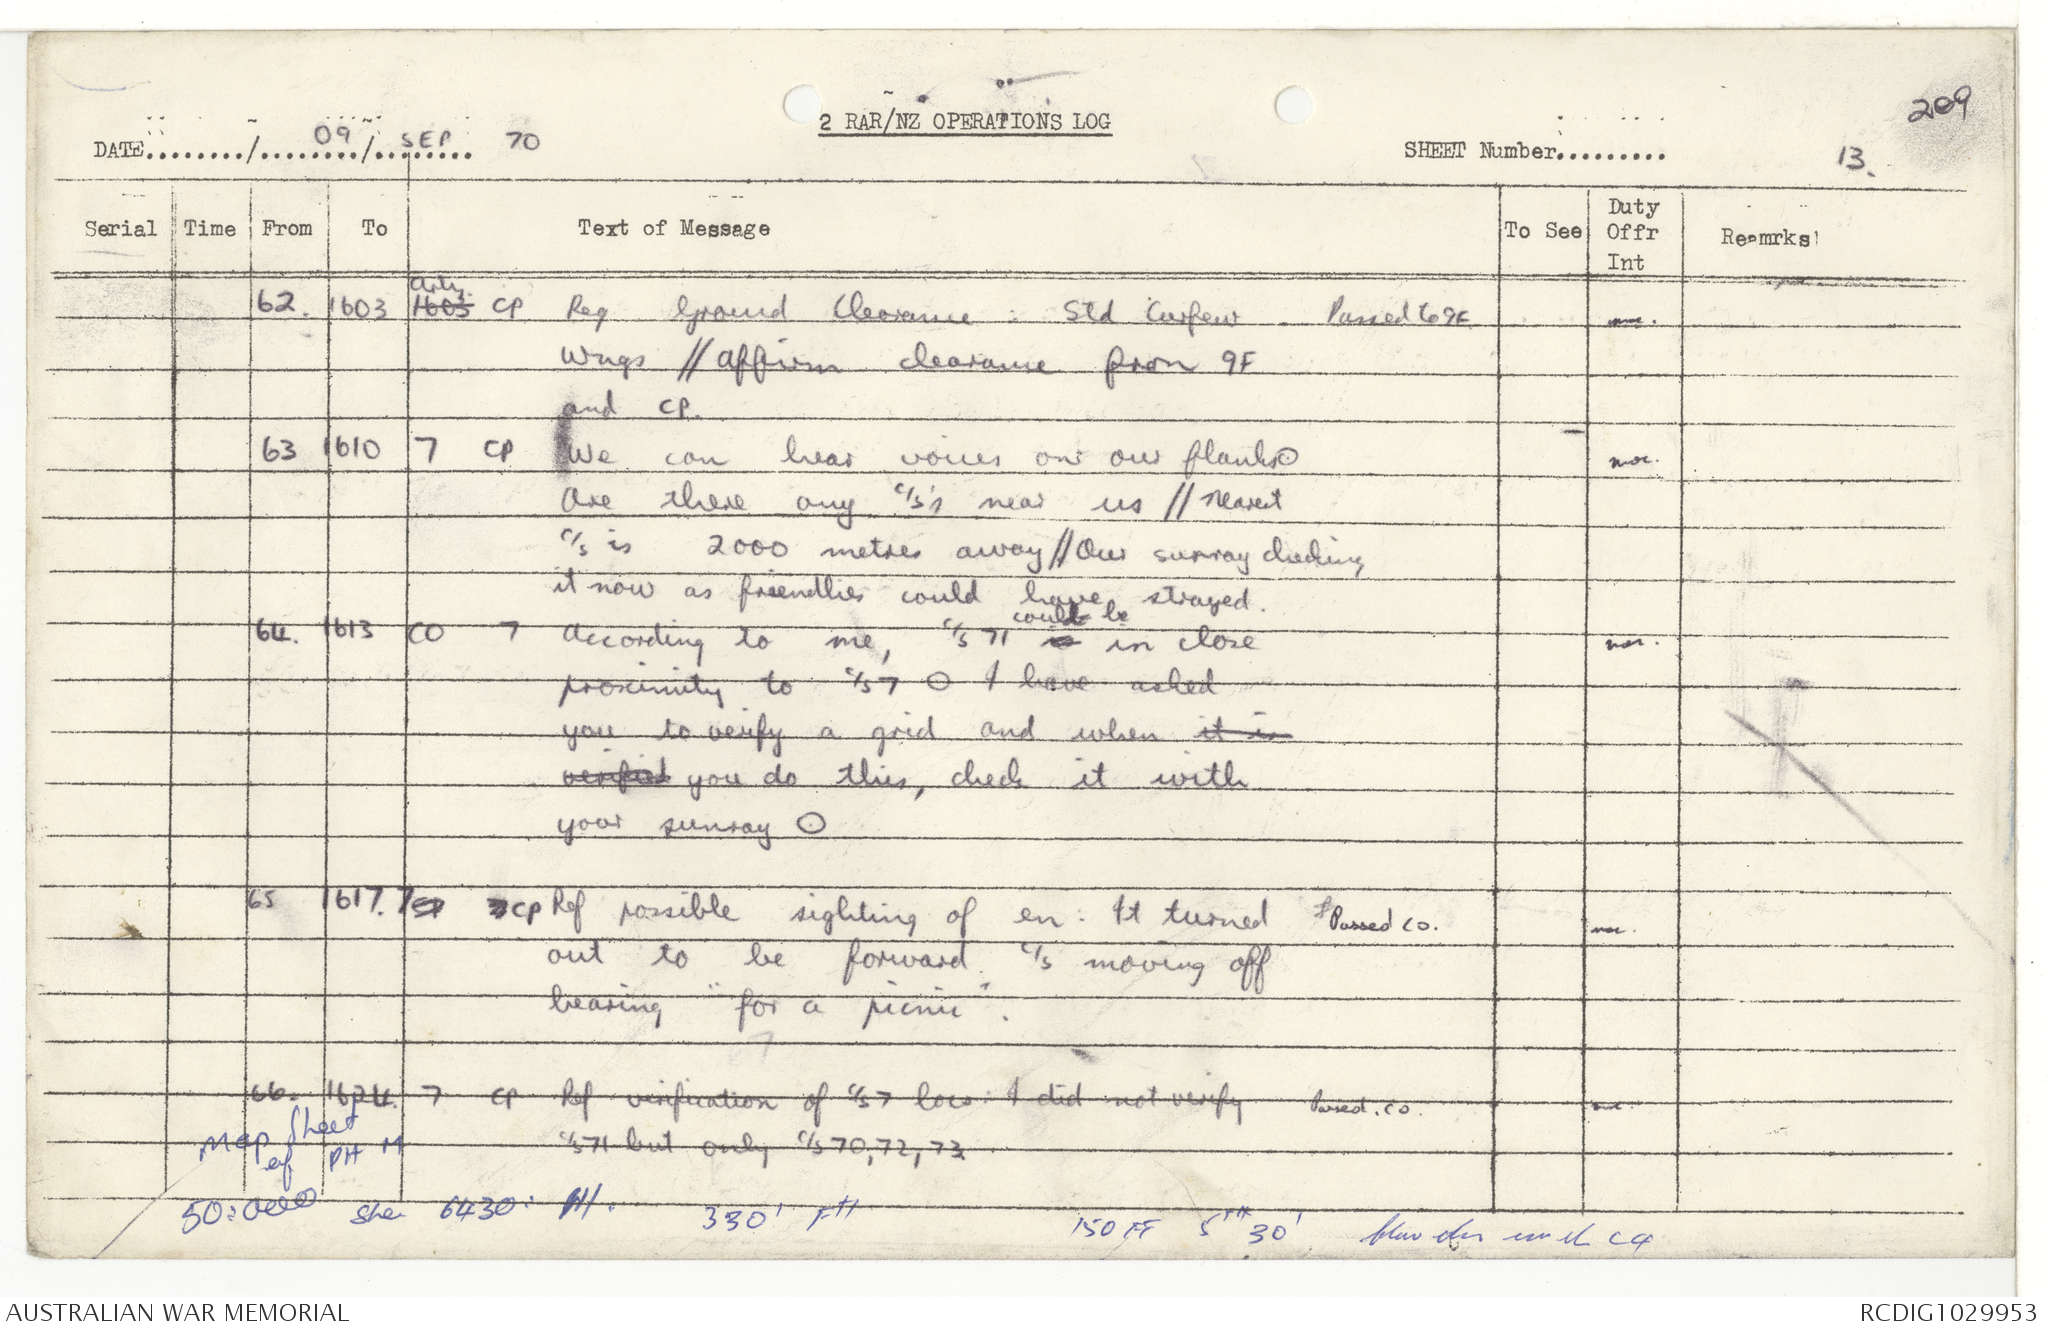 209
2 RAR/NZ OPERATIONS LOG
DATE......../......../........ 09 SEP 70
SHEET Number......... 13.
Serial Time From To Text of Message To See Duty Offr Int Reamrks
62. 1603 Arty. 1603 CP Req Ground Clearance. Std Curfew. Passed to 9F
Wngs // Affirm clearance from 9F
and CP.
63 1610 7 CP We can hear voices on our flanks ⊙
Are there any C/S's near us // Nearest
C/S is 2000 metres away // Our sunray checking
it now as friendlies could have strayed.
64. 1613 CO 7 According to me, C/S 71 could be in close
proximity to C/S 7 O I have asked
you to verify a grid and when it is
verified you do this, check it with
your sunray ⊙
65 1617. 7 CP Ref possible sighting of en. It turned Passed CO.
out to be forward C/S moving off
bearing "for a picnic".
66. 1624. 7 CP Ref verification of C/S 7 locs. I did not verify Passed. CO.
C/S 71 but only C/S 70, 72, 73.
Map Sheet
of PH M
50:0000 She 6430' PH. 330' FH 150 FF 5TH 30'
AUSTRALIAN WAR MEMORIAL
RCDIG1029953